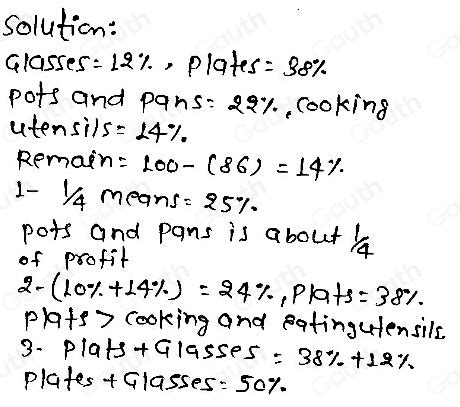 Solution:
Glasses = 12%, plates = 38%
pots and pans = 22%, cooking
utensils = 14%.
Remain = 100 - (86) = 14%
1- 1/4 means = 25%.
pots and pans is about 1/4
of profit
2- (10% + 14%) = 24%, Plats = 38%.
plats > cooking and eating utensils
3- plats + Glasses = 38% + 12%
plates + Glasses = 50%.